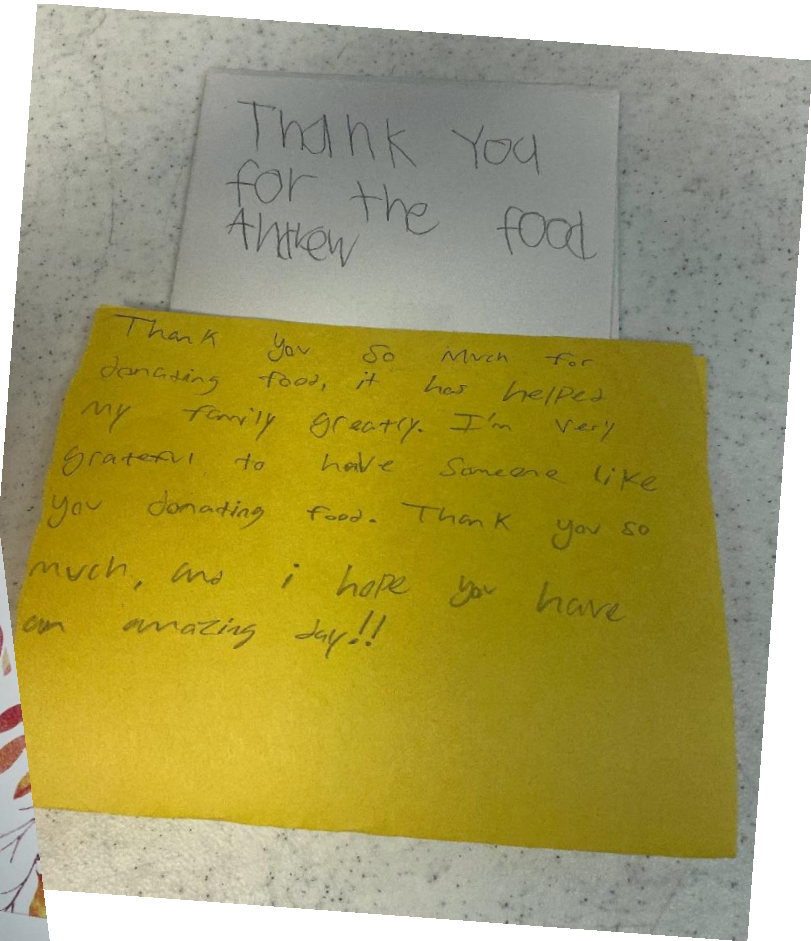 Thank You
for the food
Andrew
Thank you so much for
donating food, it has helped
my family greatly. I'm very
grateful to have someone like
you donating food. Thank you so
much, and i hope you have
an amazing day!!